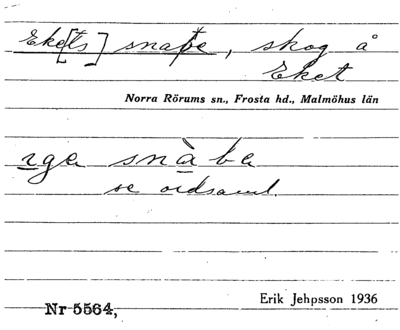 Eke[ts] snabe, skog å
Eket
Norra Rörums sn., Frosta hd., Malmöhus län
ega snàba
se ordsaml.
Erik Jehpsson 1936
Nr 5564,